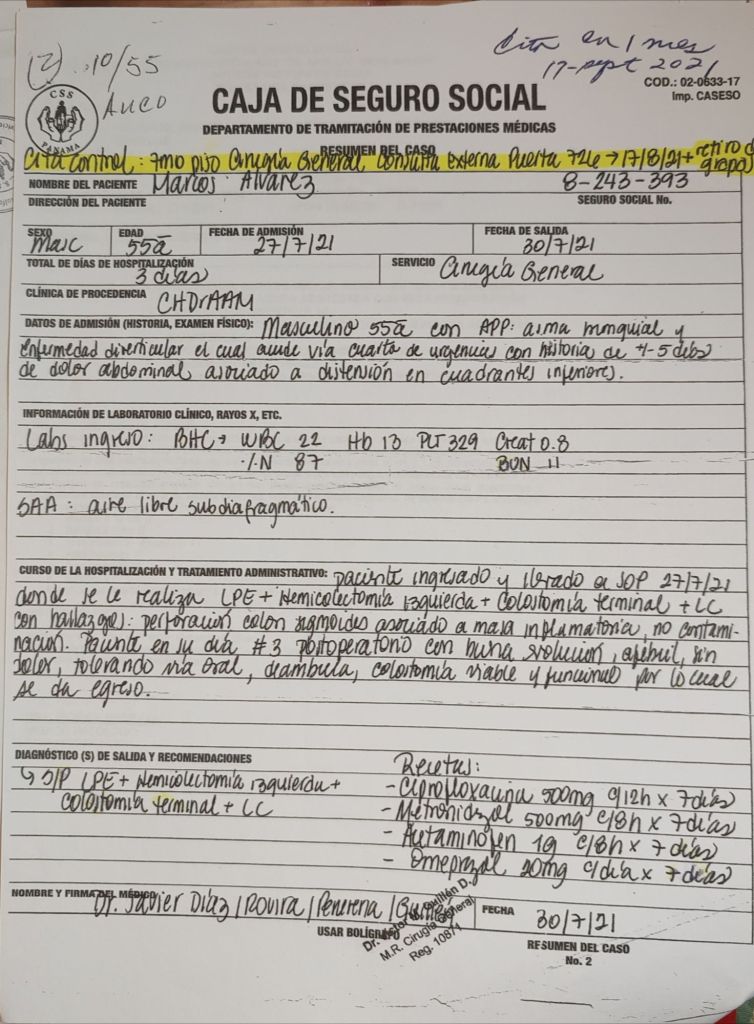 (2) 10/55
Cita en 1 mes
17-sept 2021
COD.: 02-0633-17
Imp. CASESO
CSS
PANAMA
CAJA DE SEGURO SOCIAL
DEPARTAMENTO DE TRAMITACIÓN DE PRESTACIONES MÉDICAS
RESUMEN DEL CASO
Cita Control: 7mo piso Cirugía General Consulta Externa Puerta → 17/8/21 + retiro de grapas
NOMBRE DEL PACIENTE Marcos Alvarez 8-243-393
DIRECCIÓN DEL PACIENTE SEGURO SOCIAL No.
SEXO EDAD FECHA DE ADMISIÓN FECHA DE SALIDA
Masc 55a 27/7/21 30/7/21
TOTAL DE DÍAS DE HOSPITALIZACIÓN SERVICIO Cirugía General
3 días
CLÍNICA DE PROCEDENCIA CHDrAAM
DATOS DE ADMISIÓN (HISTORIA, EXAMEN FÍSICO): Masculino 55a con APP: asma bronquial y
enfermedad diverticular el cual acude vía cuarto de urgencias con historia de +/- 5 días
de dolor abdominal asociado a distensión en cuadrantes inferiores.
INFORMACIÓN DE LABORATORIO CLÍNICO, RAYOS X, ETC.
Labs ingreso: BHC → WBC 22 Hb 13 PLT 329 Creat 0.8
%N 87 BUN 11
SAA: aire libre subdiafragmático.
CURSO DE LA HOSPITALIZACIÓN Y TRATAMIENTO ADMINISTRATIVO: paciente ingresado y llevado a SOP 27/7/21
donde se le realiza LPE + Hemicolectomía izquierda + Colostomía terminal + LC
con hallazgos: perforación colon sigmoides asociado a masa inflamatoria, no contami-
nación. Paciente en su día #3 postoperatorio con buena evolución, afebril, sin
dolor, tolerando vía oral, deambula, colostomía viable y funcional por lo cual
se da egreso.
DIAGNÓSTICO (S) DE SALIDA Y RECOMENDACIONES
↳ S/P LPE + Hemicolectomía izquierda +
colostomía terminal + LC
Recetas:
- Ciprofloxacina 500mg c/12h x 7 días
- Metronidazol 500mg c/8h x 7 días
- Acetaminofen 1g c/8h x 7 días
- Omeprazol 20mg c/día x 7 días
NOMBRE Y FIRMA DEL MÉDICO Dr. Javier Díaz / Rovira /
USAR BOLÍGRAFO
Guillén D.
M.R. Cirugía General
Reg. 10871
FECHA 30/7/21
RESUMEN DEL CASO
No. 2